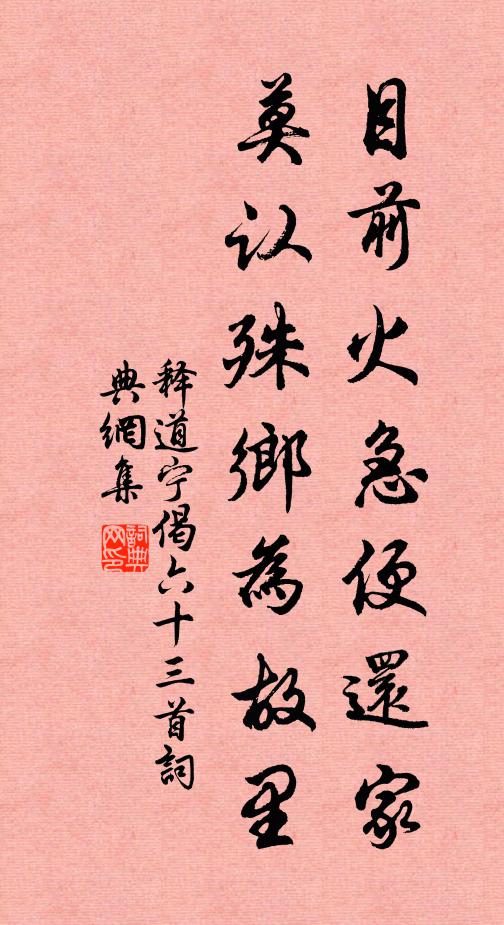 目前火急便還家
莫认殊鄉為故里
释道宁偈六十三首詞
典網集
詞典网印